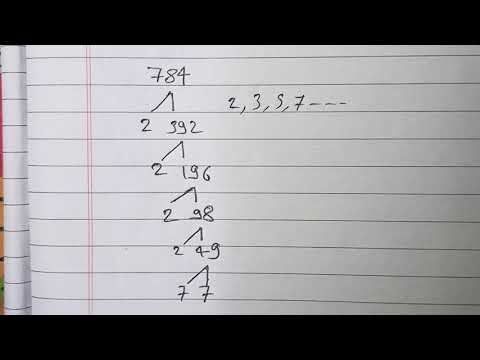 784
2, 3, 5, 7 ----
2 392
2 196
2 98
2 49
7 7